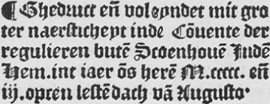 ¶ Ghediuct en̄ voleondet mit gro
ter naerstichept inde Cōuente der
regulieren butē Scoenhouē Indē
Hem. int iaer ōs herē M. cccc. en̄
ij. opten lestē dach vā Augusto·